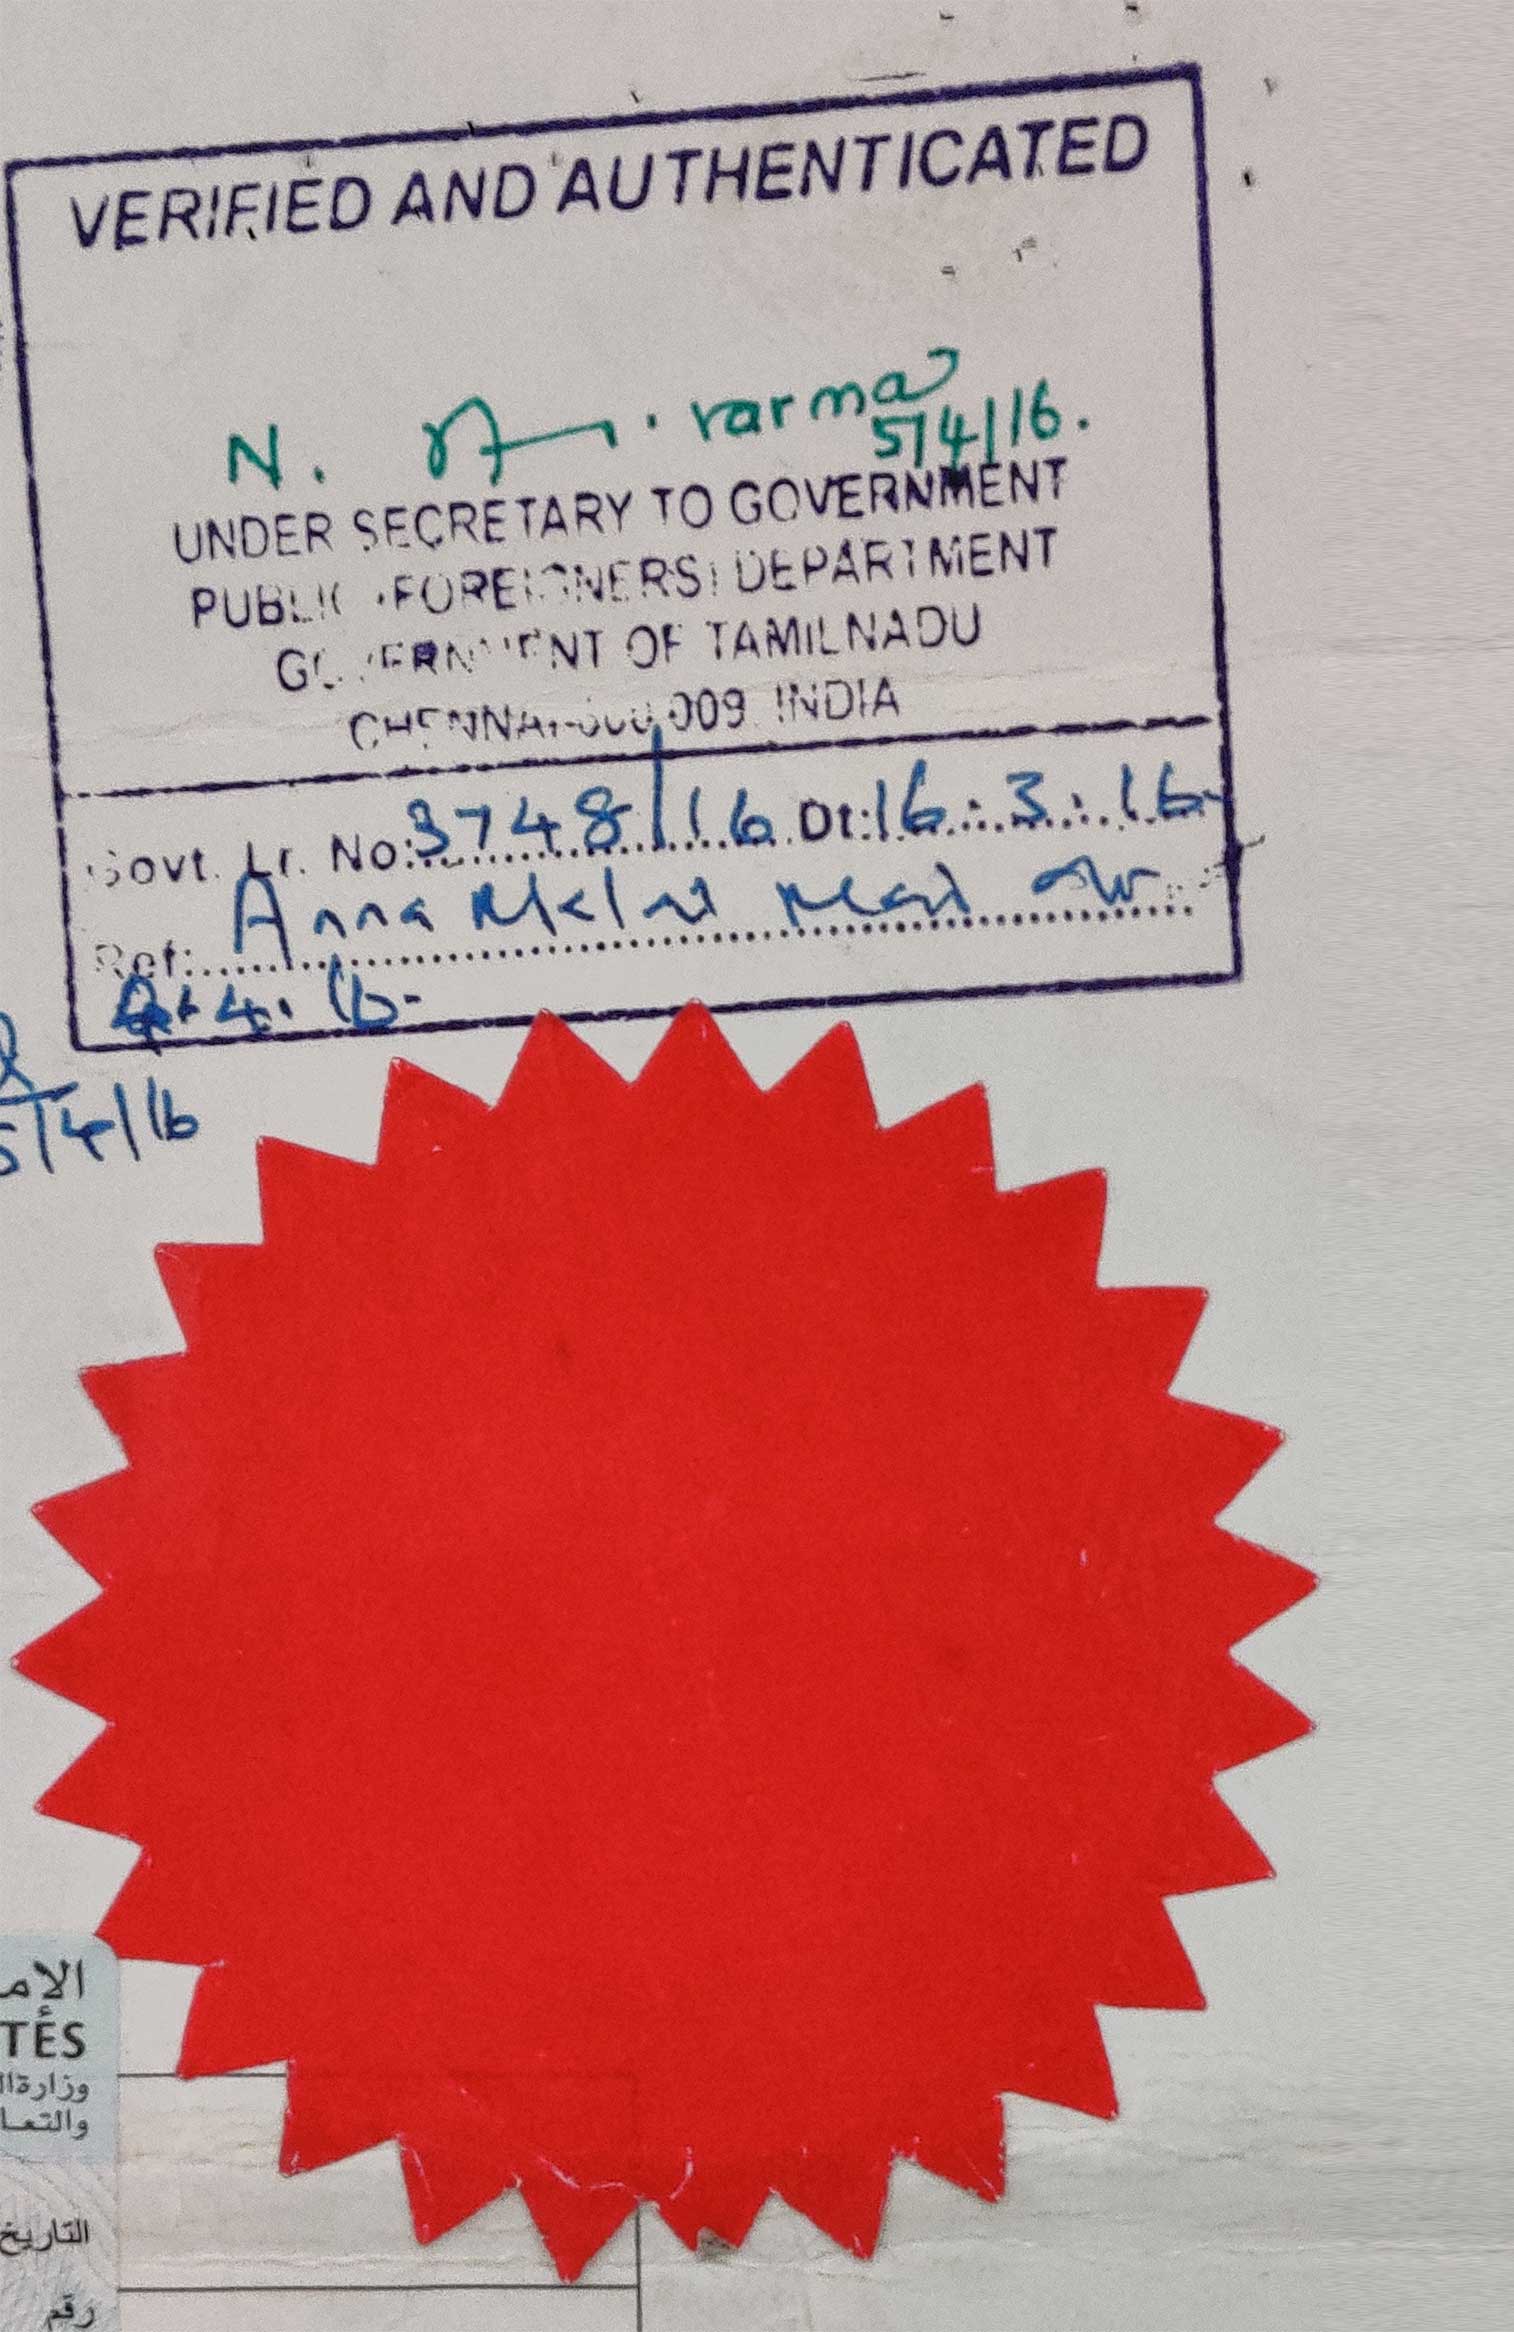 VERIFIED AND AUTHENTICATED
N. varma
5/4/16.
UNDER SECRETARY TO GOVERNMENT
PUBLIC (FOREIGNERS) DEPARTMENT
GOVERNMENT OF TAMILNADU
CHENNAI-600 009. INDIA
Govt. Lr. No: 3748/16 Dt: 16.3.16
Ref: Anna
4.16
5/4/16
الام
TES
وزارة ال
والتعا
التاريخ
رقم